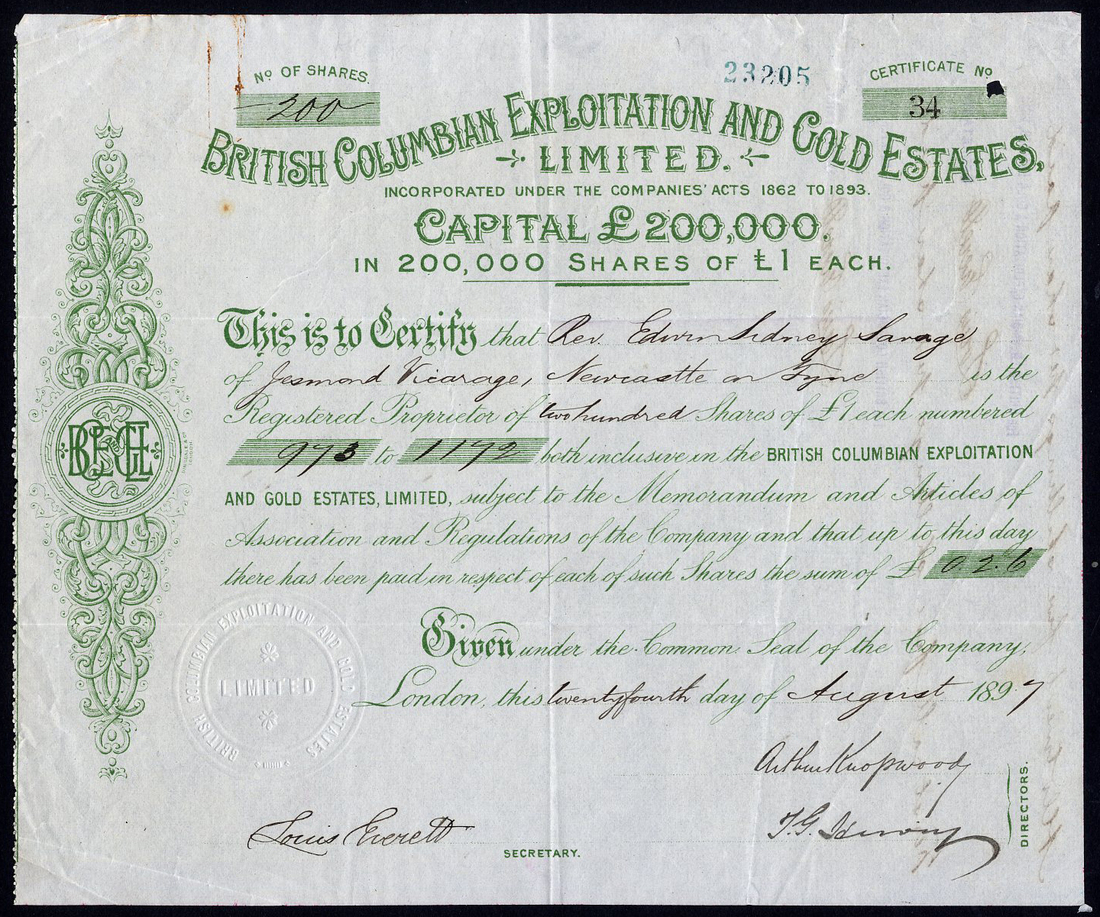 No OF SHARES.
200
23205
CERTIFICATE No
34
BRITISH COLUMBIAN EXPLOITATION AND GOLD ESTATES,
LIMITED.
INCORPORATED UNDER THE COMPANIES' ACTS 1862 TO 1893.
CAPITAL £200,000.
IN 200,000 SHARES OF £1 EACH.
This is to Certify that Rev. Edwin Sidney Savage
of Jesmond Vicarage, Newcastle on Tyne is the
Registered Proprietor of two hundred Shares of £1 each numbered
973 to 1172 both inclusive in the BRITISH COLUMBIAN EXPLOITATION
AND GOLD ESTATES, LIMITED, subject to the Memorandum and Articles of
Association and Regulations of the Company and that up to this day
there has been paid in respect of each of such Shares the sum of £ 0.2.6
Given under the Common Seal of the Company,
London, this twentyfourth day of August 1897
BRITISH COLUMBIAN EXPLOITATION AND GOLD ESTATES
LIMITED
Arthur Knopwood
Louis Everett
SECRETARY.
DIRECTORS.